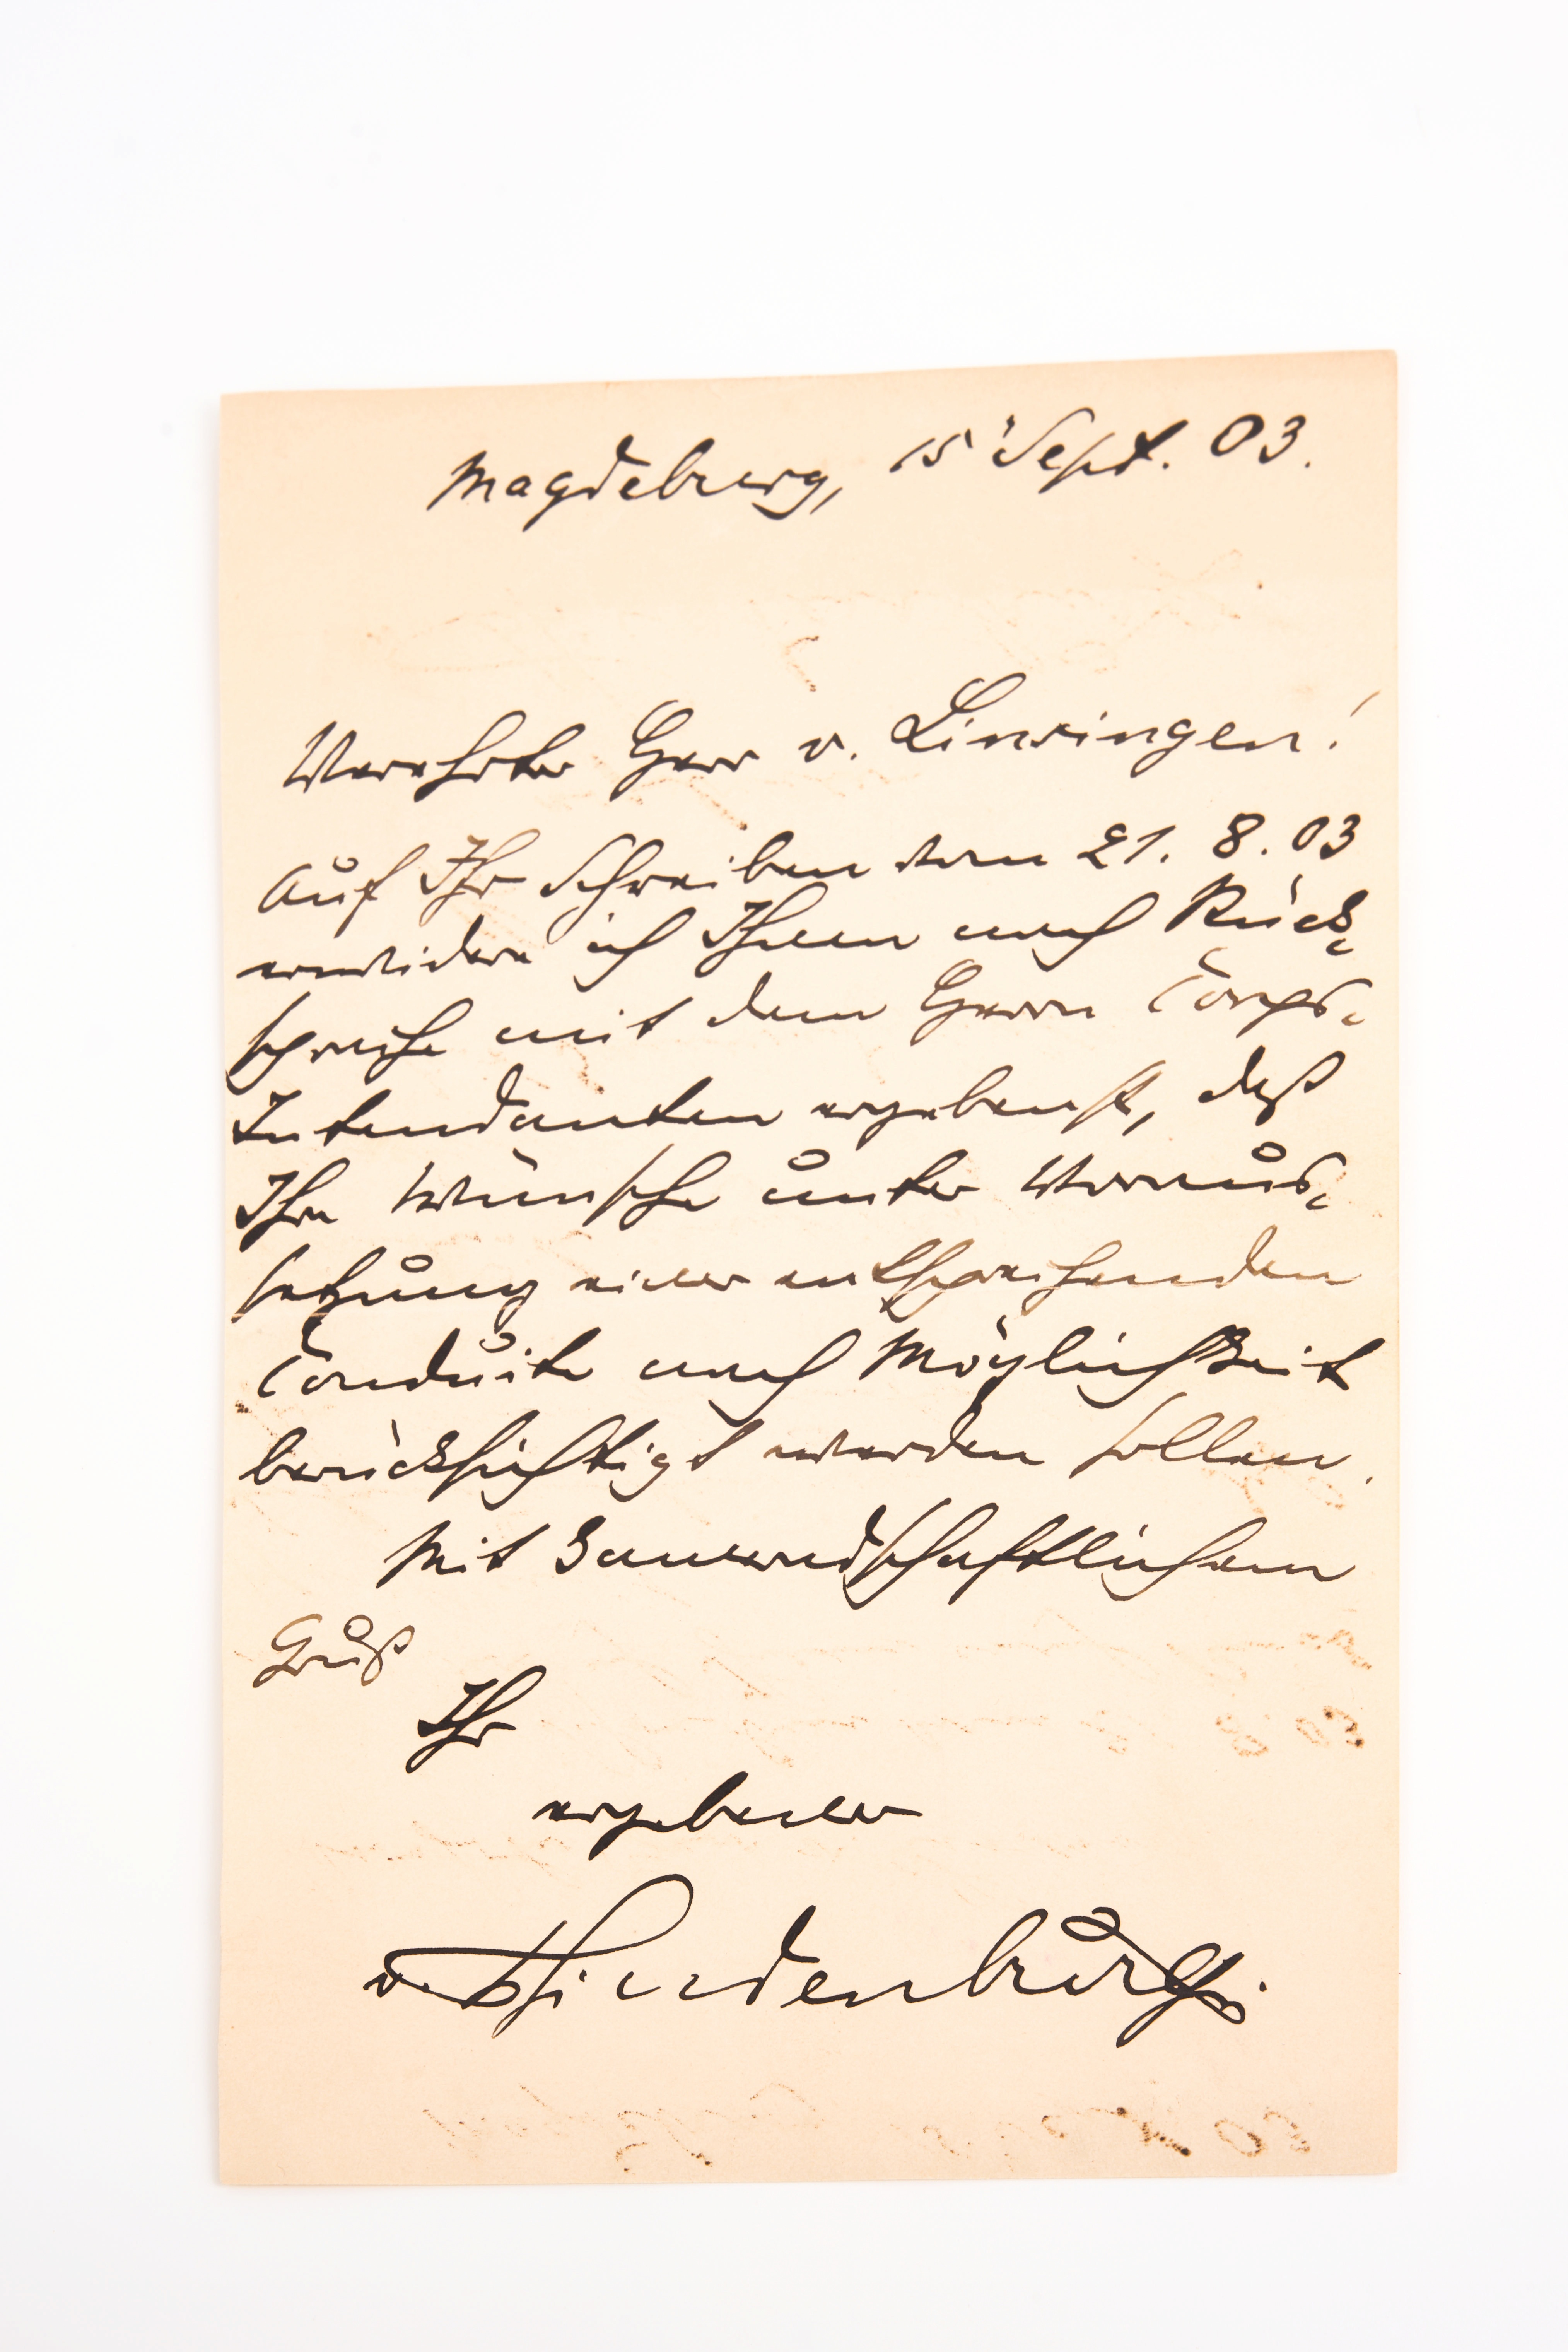 Magdeburg, 15 Sept. 03.
Verehrter Herr v. Linsingen!
Auf Ihr Schreiben vom 21. 8. 03
erwidere ich Ihnen nach Rück-
sprache mit dem Herrn Corps-
Intendanten ergebenst, daß
Ihre Wünsche unter Voraus-
setzung einer entsprechenden
Conduite nach Möglichkeit
berücksichtigt werden sollen.
Mit kameradschaftlichem
Gruß
Ihr
ergebener
v. Hindenburg.